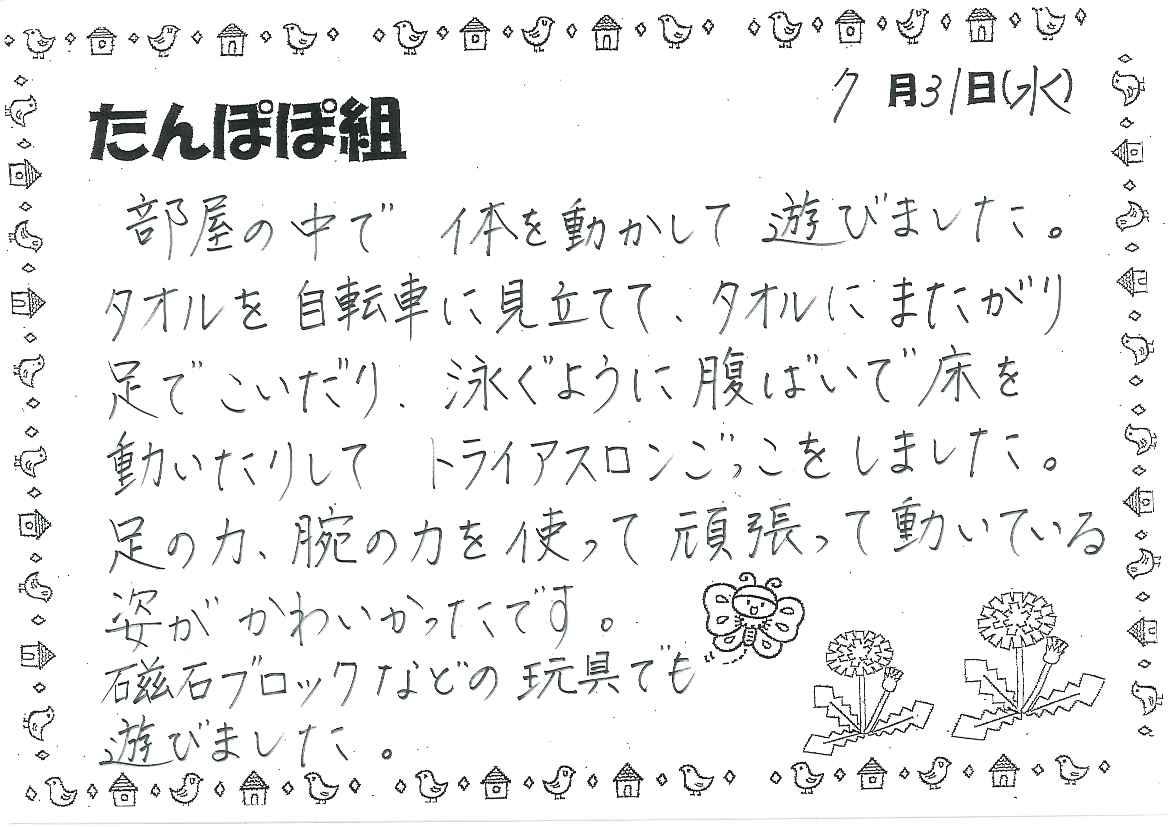 7月31日(水)
たんぽぽ組
部屋の中で 体を動かして 遊びました。
タオルを 自転車に見立てて、タオルに またがり
足で こいだり、泳ぐように 腹ばいで 床を
動いたりして トライアスロンごっこをしました。
足の力、腕の力を使って 頑張って動いている
姿が かわいかったです。
磁石ブロックなどの 玩具でも
遊びました。